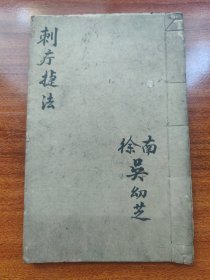 刺疔捷法
南徐吴幼芝